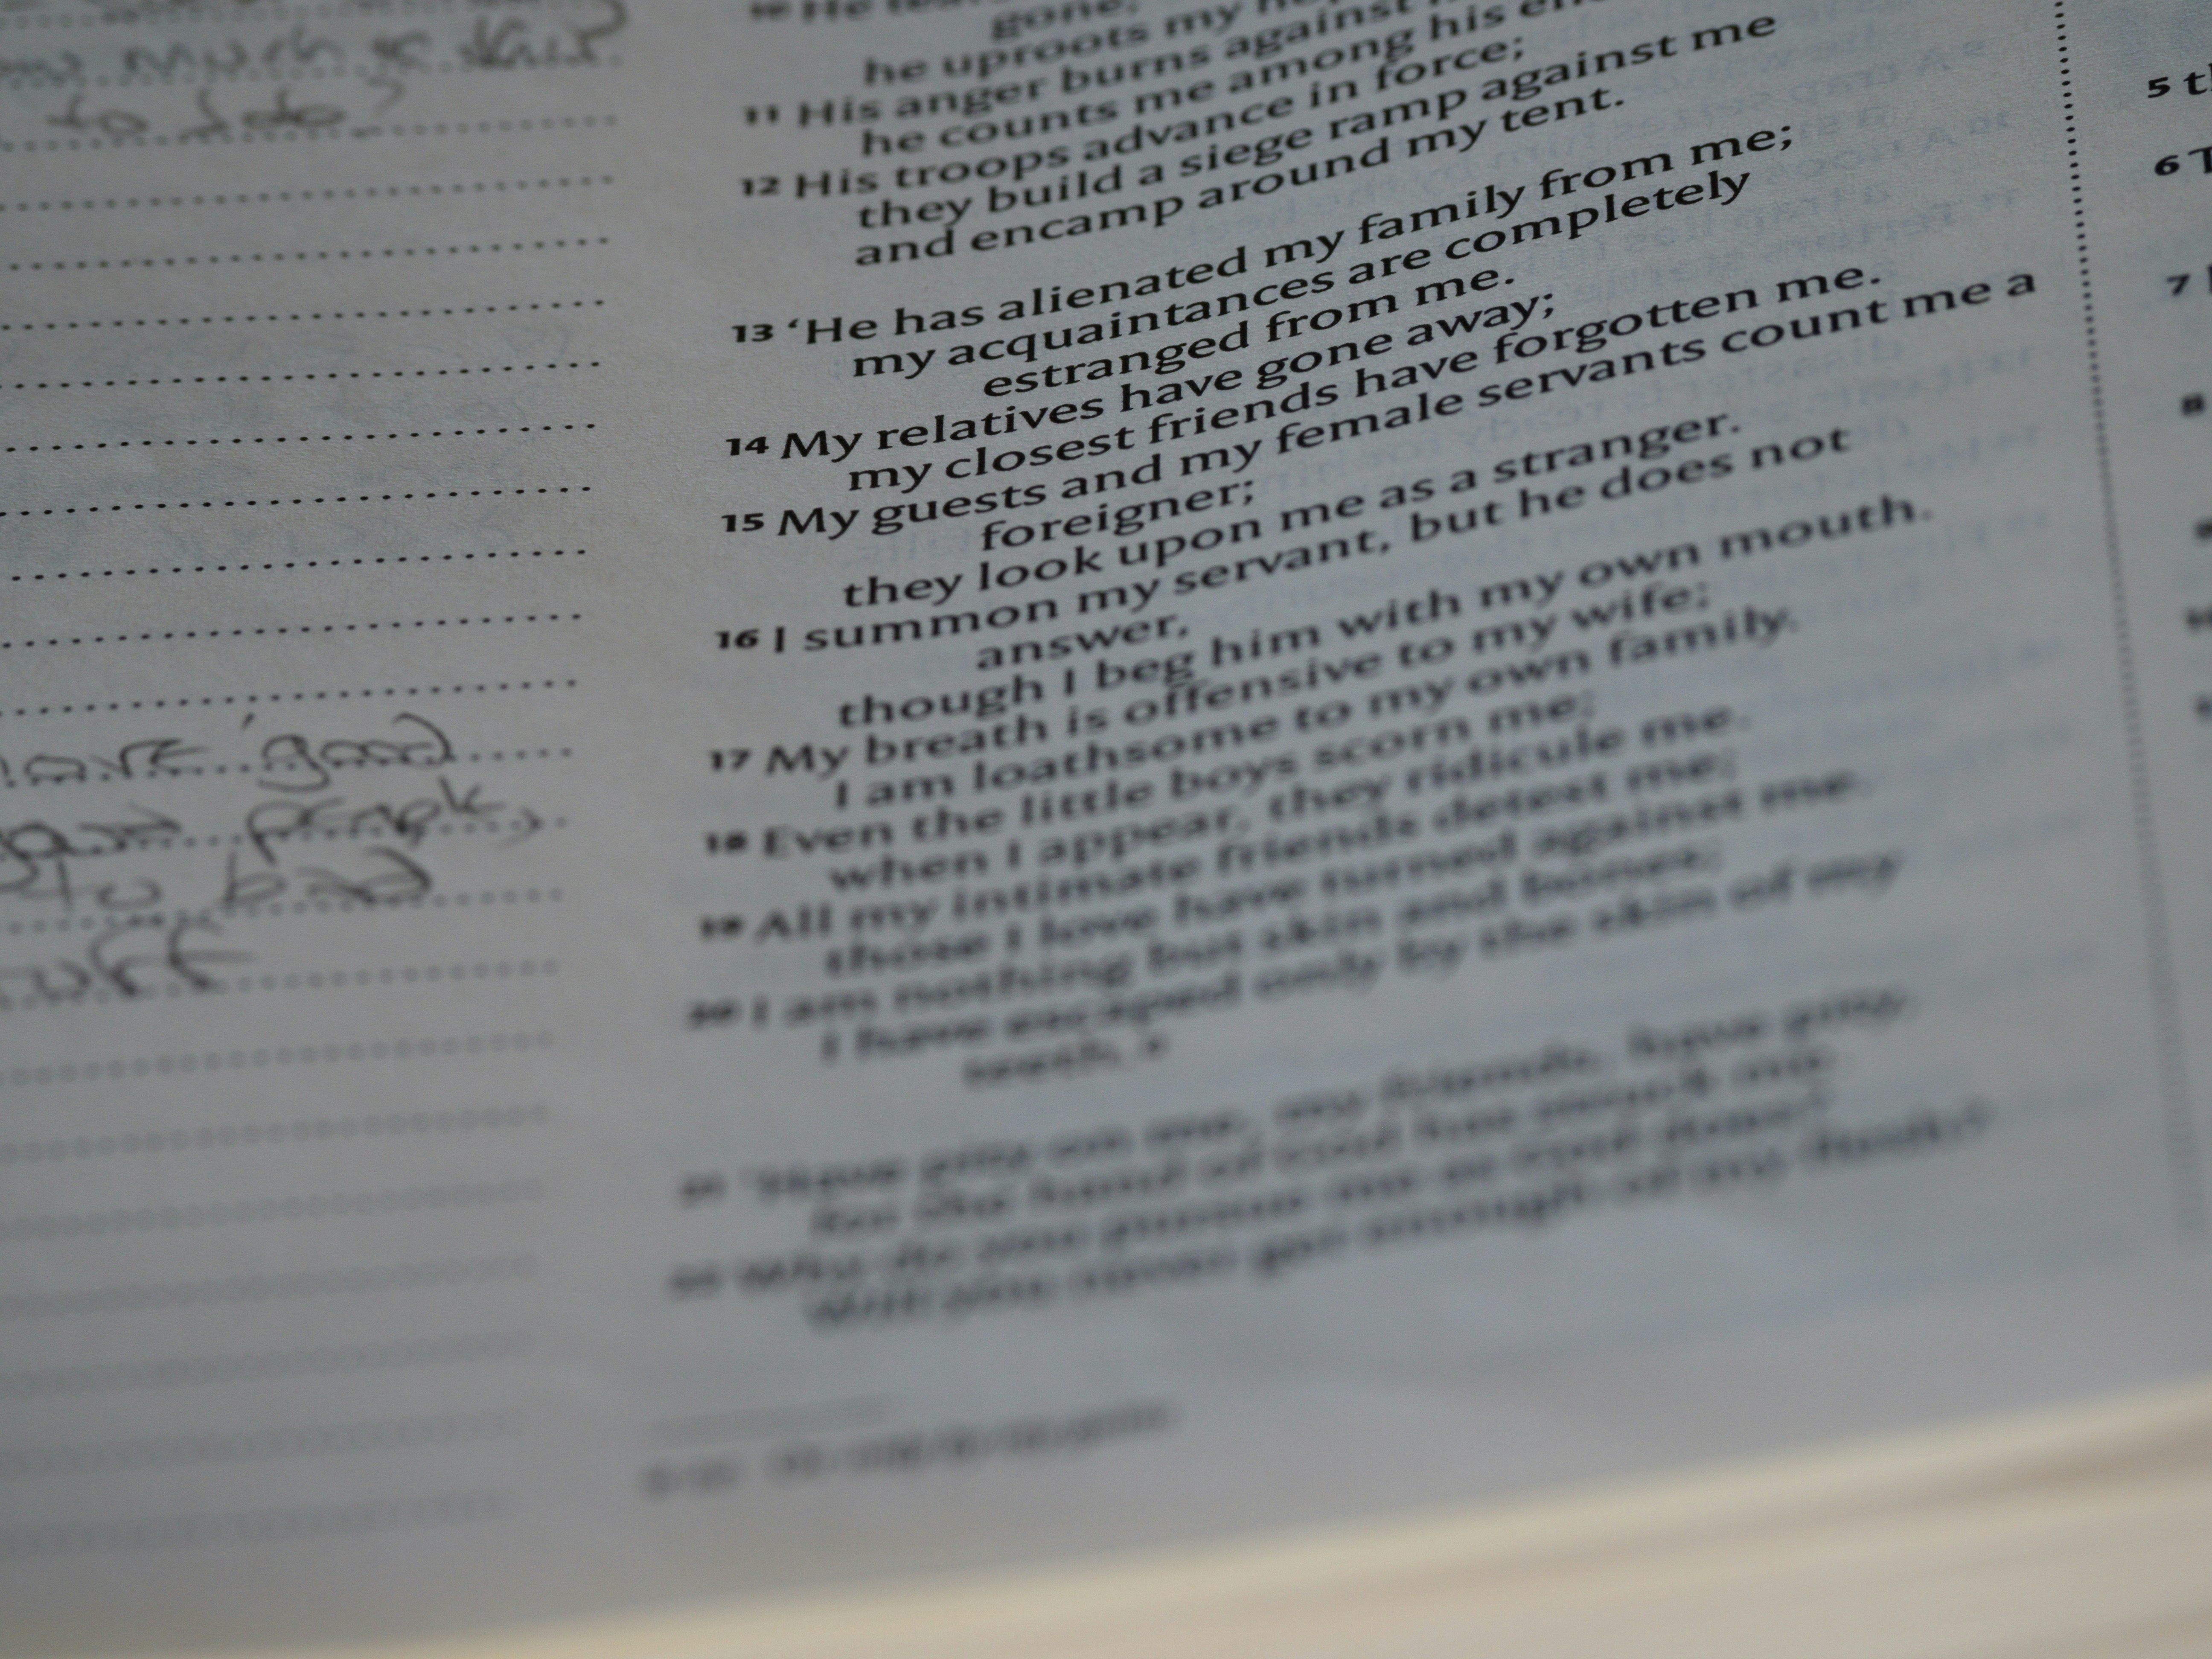 much
to Job?
good
people,
to bad
gone;
he uproots my
11 His anger burns against
he counts me among his
12 His troops advance in force;
they build a siege ramp against me
and encamp around my tent.
13 ‘He has alienated my family from me;
my acquaintances are completely
estranged from me.
14 My relatives have gone away;
my closest friends have forgotten me.
15 My guests and my female servants count me a
foreigner;
they look upon me as a stranger.
16 I summon my servant, but he does not
answer,
though I beg him with my own mouth.
17 My breath is offensive to my wife;
I am loathsome to my own family.
18 Even the little boys scorn me;
when I appear, they ridicule me.
19 All my intimate friends detest me;
those I love have turned against me.
20 I am nothing but skin and bones;
I have escaped only by the skin of my
teeth.
21 ‘Have pity on me, my friends, have pity,
for the hand of God has struck me.
22 Why do you pursue me as God does?
Will you never get enough of my flesh?
5
6
7
8